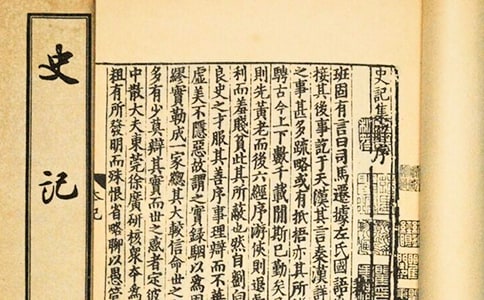 史記集解序
班固有言曰司馬遷據左氏國語
接其後事訖于天漢其言秦漢詳
之事甚多疏略或有抵梧亦其所
騁古今上下數千載閒斯已勤矣
則先黃老而後六經序游俠則退
利而羞賤貧此其所蔽也然自劉向
良史之才服其善序事理辯而不華
虛美不隱惡故謂之實錄駰以為固
繆實勒成一家總其大較信命世之
多有少莫辯其實而世之惑者定彼
中散大夫東莞徐廣研核衆本為
粗有所發明而殊恨省略聊以愚管
史記